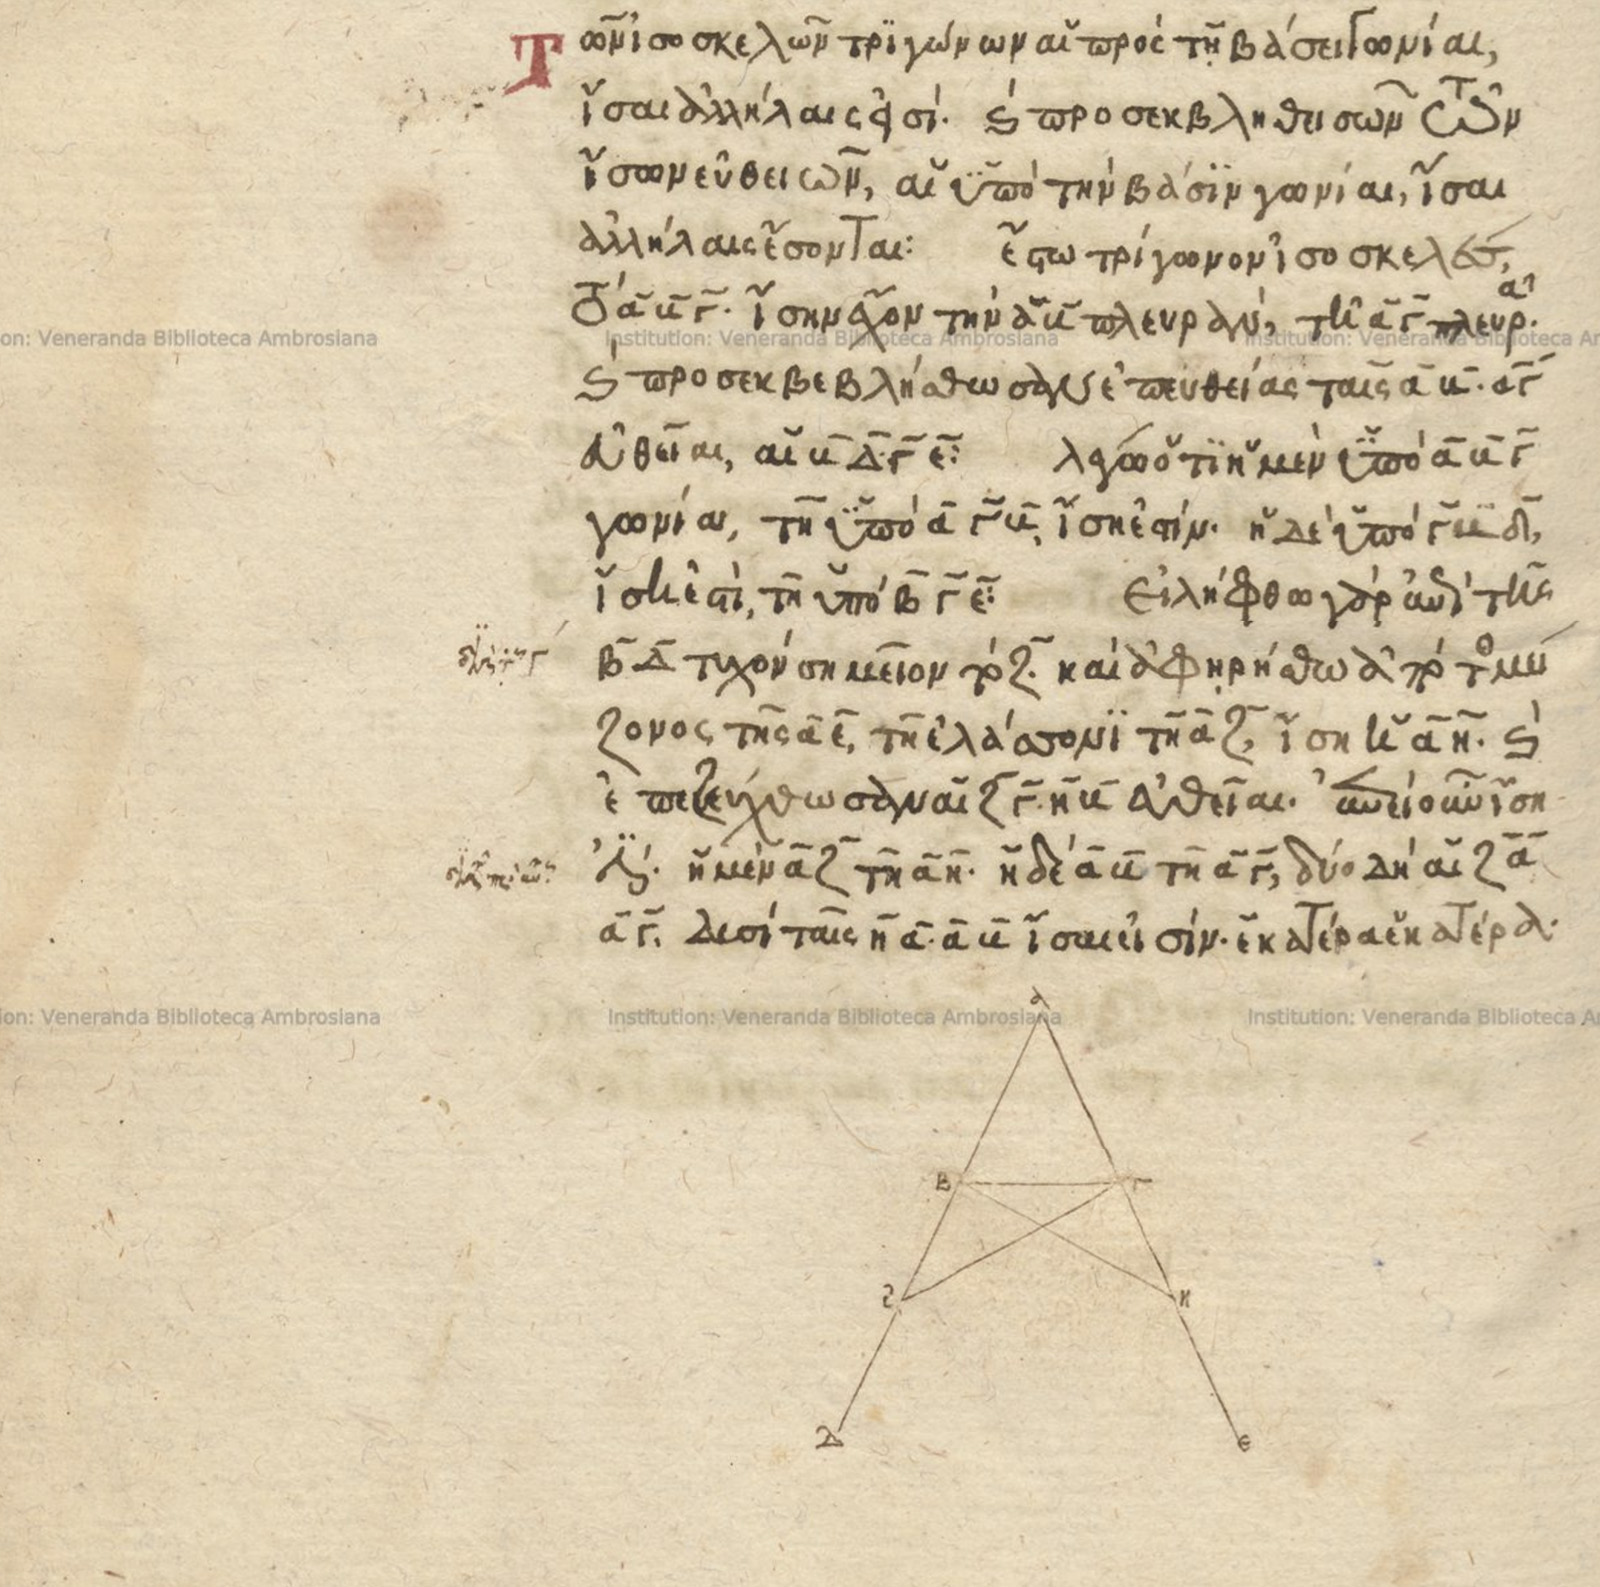 Τῶν ἰσοσκελῶν τριγώνων αἱ πρὸς τῇ βάσει γωνίαι,
ἴσαι ἀλλήλαις εἰσί. καὶ προσεκβληθεισῶν τῶν
ἴσων εὐθειῶν, αἱ ὑπὸ τὴν βάσιν γωνίαι, ἴσαι
ἀλλήλαις ἔσονται: ἔστω τρίγωνον ἰσοσκελὲς,
τὸ α̅ β̅ γ̅. ἴσην ἔχον τὴν α̅β̅ πλευρὰν, τῇ α̅ γ̅ πλευρᾷ.
καὶ προσεκβεβλήσθωσαν ἐπευθείας ταῖς α̅ β̅. α̅γ̅
εὐθεῖαι, αἱ β̅ δ̅. γ̅ ε̅: λέγω ὅτι ἡ μὲν ὑπὸ α̅ β̅ γ̅
γωνία, τῇ ὑπὸ α̅ γ̅ β̅, ἴση ἐστίν. ἡ δὲ ὑπὸ γ̅ β̅ δ̅,
ἴση ἐστὶ, τῇ ὑπὸ β̅ γ̅ ε̅: εἰλήφθω γὰρ ἐπὶ τῆς
β̅ δ̅ τυχὸν σημεῖον τὸ ζ̅. καὶ ἀφῃρήσθω ἀπὸ τῆς μεί
ζονος τῆς α̅ ε̅, τῇ ἐλάσσονι τῇ α̅ ζ̅, ἴση ἡ α̅ η̅. καὶ
ἐπεζεύχθωσαν αἱ ζ̅ γ̅. η̅ β̅ εὐθεῖαι. ἐπεὶ οὖν ἴση
ἐστὶν. ἡ μὲν α̅ ζ̅ τῇ α̅ η̅. ἡ δὲ α̅ β̅ τῇ α̅ γ̅, δύο δὴ αἱ ζ̅ α̅
α̅ γ̅. δυσὶ ταῖς η̅ α̅. α̅ β̅ ἴσαι εἰσίν. ἑκατέρα ἑκατέρᾳ.
α
β γ
ζ η
δ ε
Institution: Veneranda Biblioteca Ambrosiana
Institution: Veneranda Biblioteca Ambrosiana